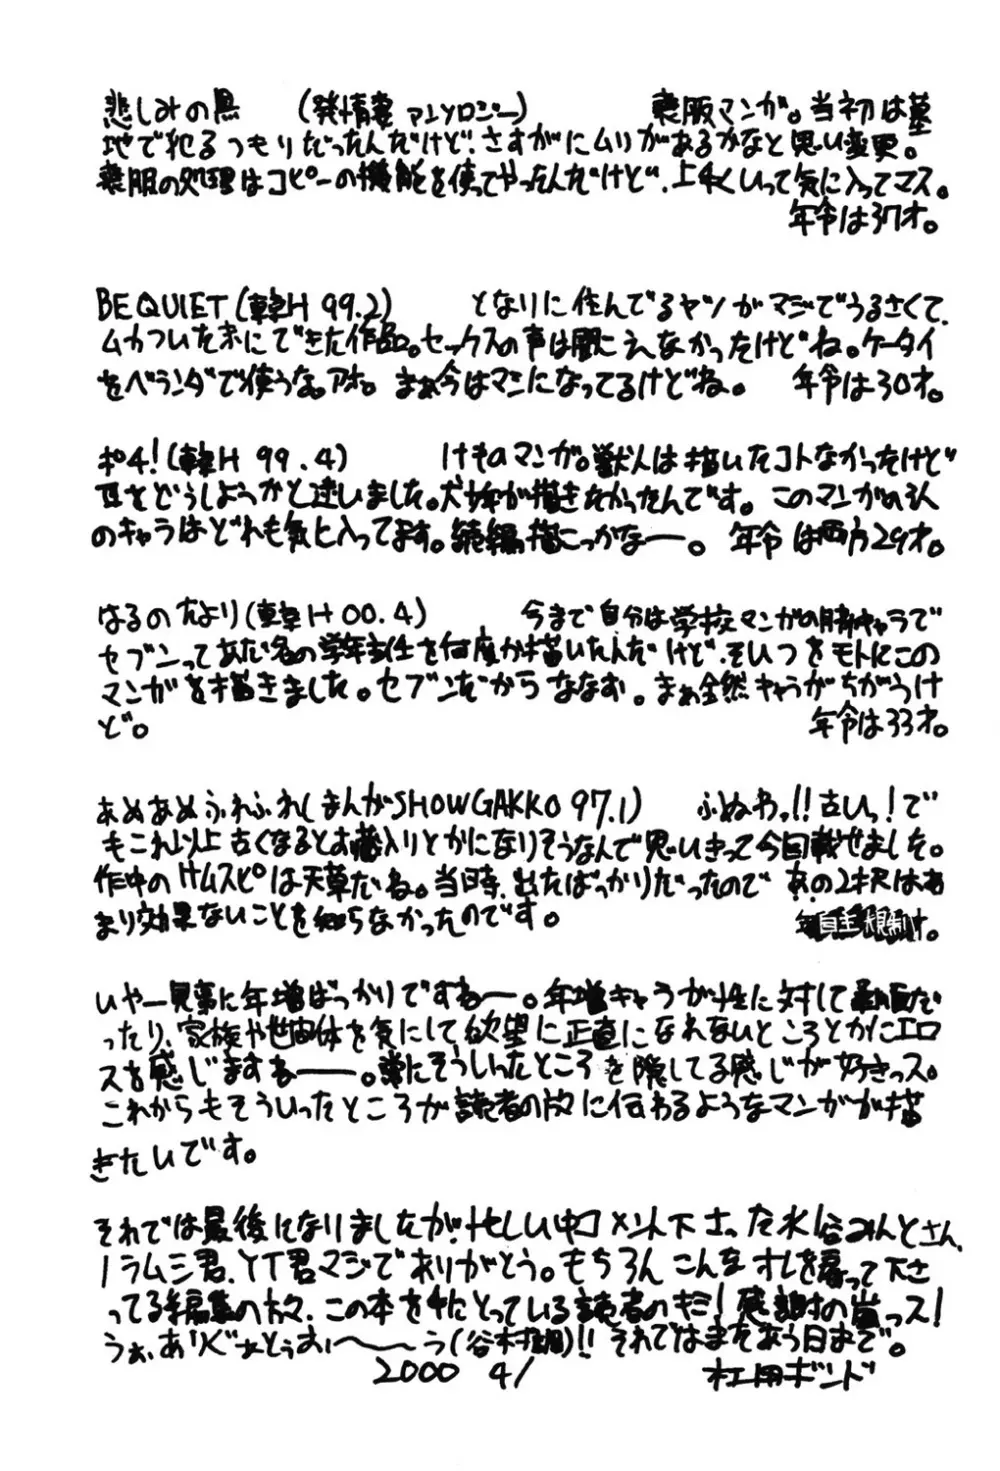 悲しみの黒 (発情妻アンソロジー) 喪服マンガ。当初は墓
地で犯るつもりだったんだけど、さすがにムリがあるかなと思い変更。
喪服の処理はコピーの機能を使ってやったんだけど、上手くいって気に入ってマス。
年令は37才。
BE QUIET (華H 99.2) となりに住んでるヤツがマジでうるさくて、
ムカついた末にできた作品。セックスの声は聞こえなかったけどね。ケータイ
をベランダで使うな。アホ。まぁ今はマシになってるけどね。 年令は30才。
ポチ! (華H 99.4) けものマンガ。獣人は描いたコトなかったけど
耳をどうしようかと迷いました。犬が描きたかったんです。このマンガの3人
のキャラはどれも気に入ってます。続編描こっかなー。 年令は両方29才。
はるのたより (華H 00.4) 今まで自分は学校マンガの脇キャラで
セブンってあだ名の学年主任を何度か描いたんだけど、そいつをモトにこの
マンガを描きました。セブンだからななお。まぁ全然キャラがちがうけ
ど。 年令は33才。
あめあめふれふれ (まんがSHOWGAKKO 97.1) ふぬわっ!!古いっ!で
もこれ以上古くなるとお蔵入りとかになりそうなんで思いきって今回載せました。
作中のサムスピは天草だね。当時、出たばっかりだったので あの2択はあ
まり効果ないことを知らなかったのです。 年自主規制才。
いやー見事に年増ばっかりですねー。年増キャラが性に対して だ
ったり、家族や世間体を気にして欲望に正直になれないところとかにエロ
スを感じますねー。常にそういったところを隠してる感じが好きっス。
これからもそういったところが読者の方に伝わるようなマンガが描
きたいです。
それでは最後になりましたが、忙しい中コメント下さった水谷みんとさん、
ノラムシ君、YT君マジでありがとう。もちろんこんなオレを雇って下さ
ってる編集の方々、この本を手にとっている読者のキミ!感謝の嵐っス!
うぉ、ありぐぁとぅおぉ〜〜う(谷村)!! それではまた会う日まで。
2000 4/ 杠用ボンド